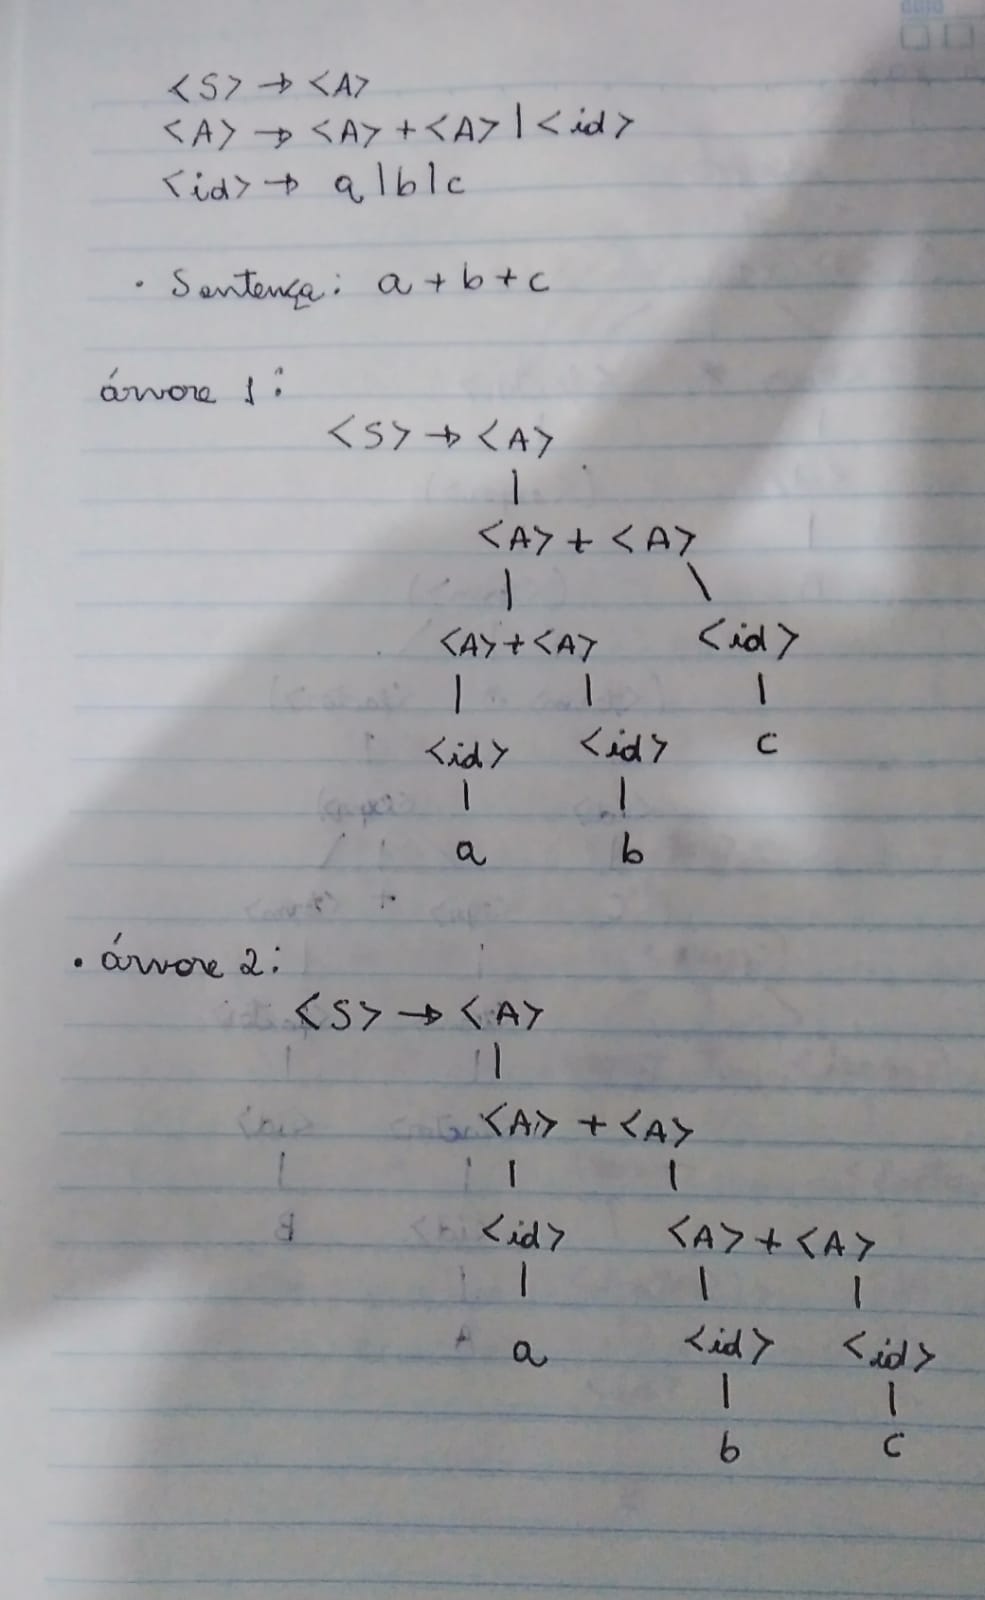 <S> → <A>
<A> → <A> + <A> | <id>
<id> → a | b | c
• Sentença: a + b + c
árvore 1:
<S> → <A>
<A> + <A>
<A> + <A> <id>
<id> <id> c
a b
• árvore 2:
<S> → <A>
<A> + <A>
<id> <A> + <A>
a <id> <id>
b c